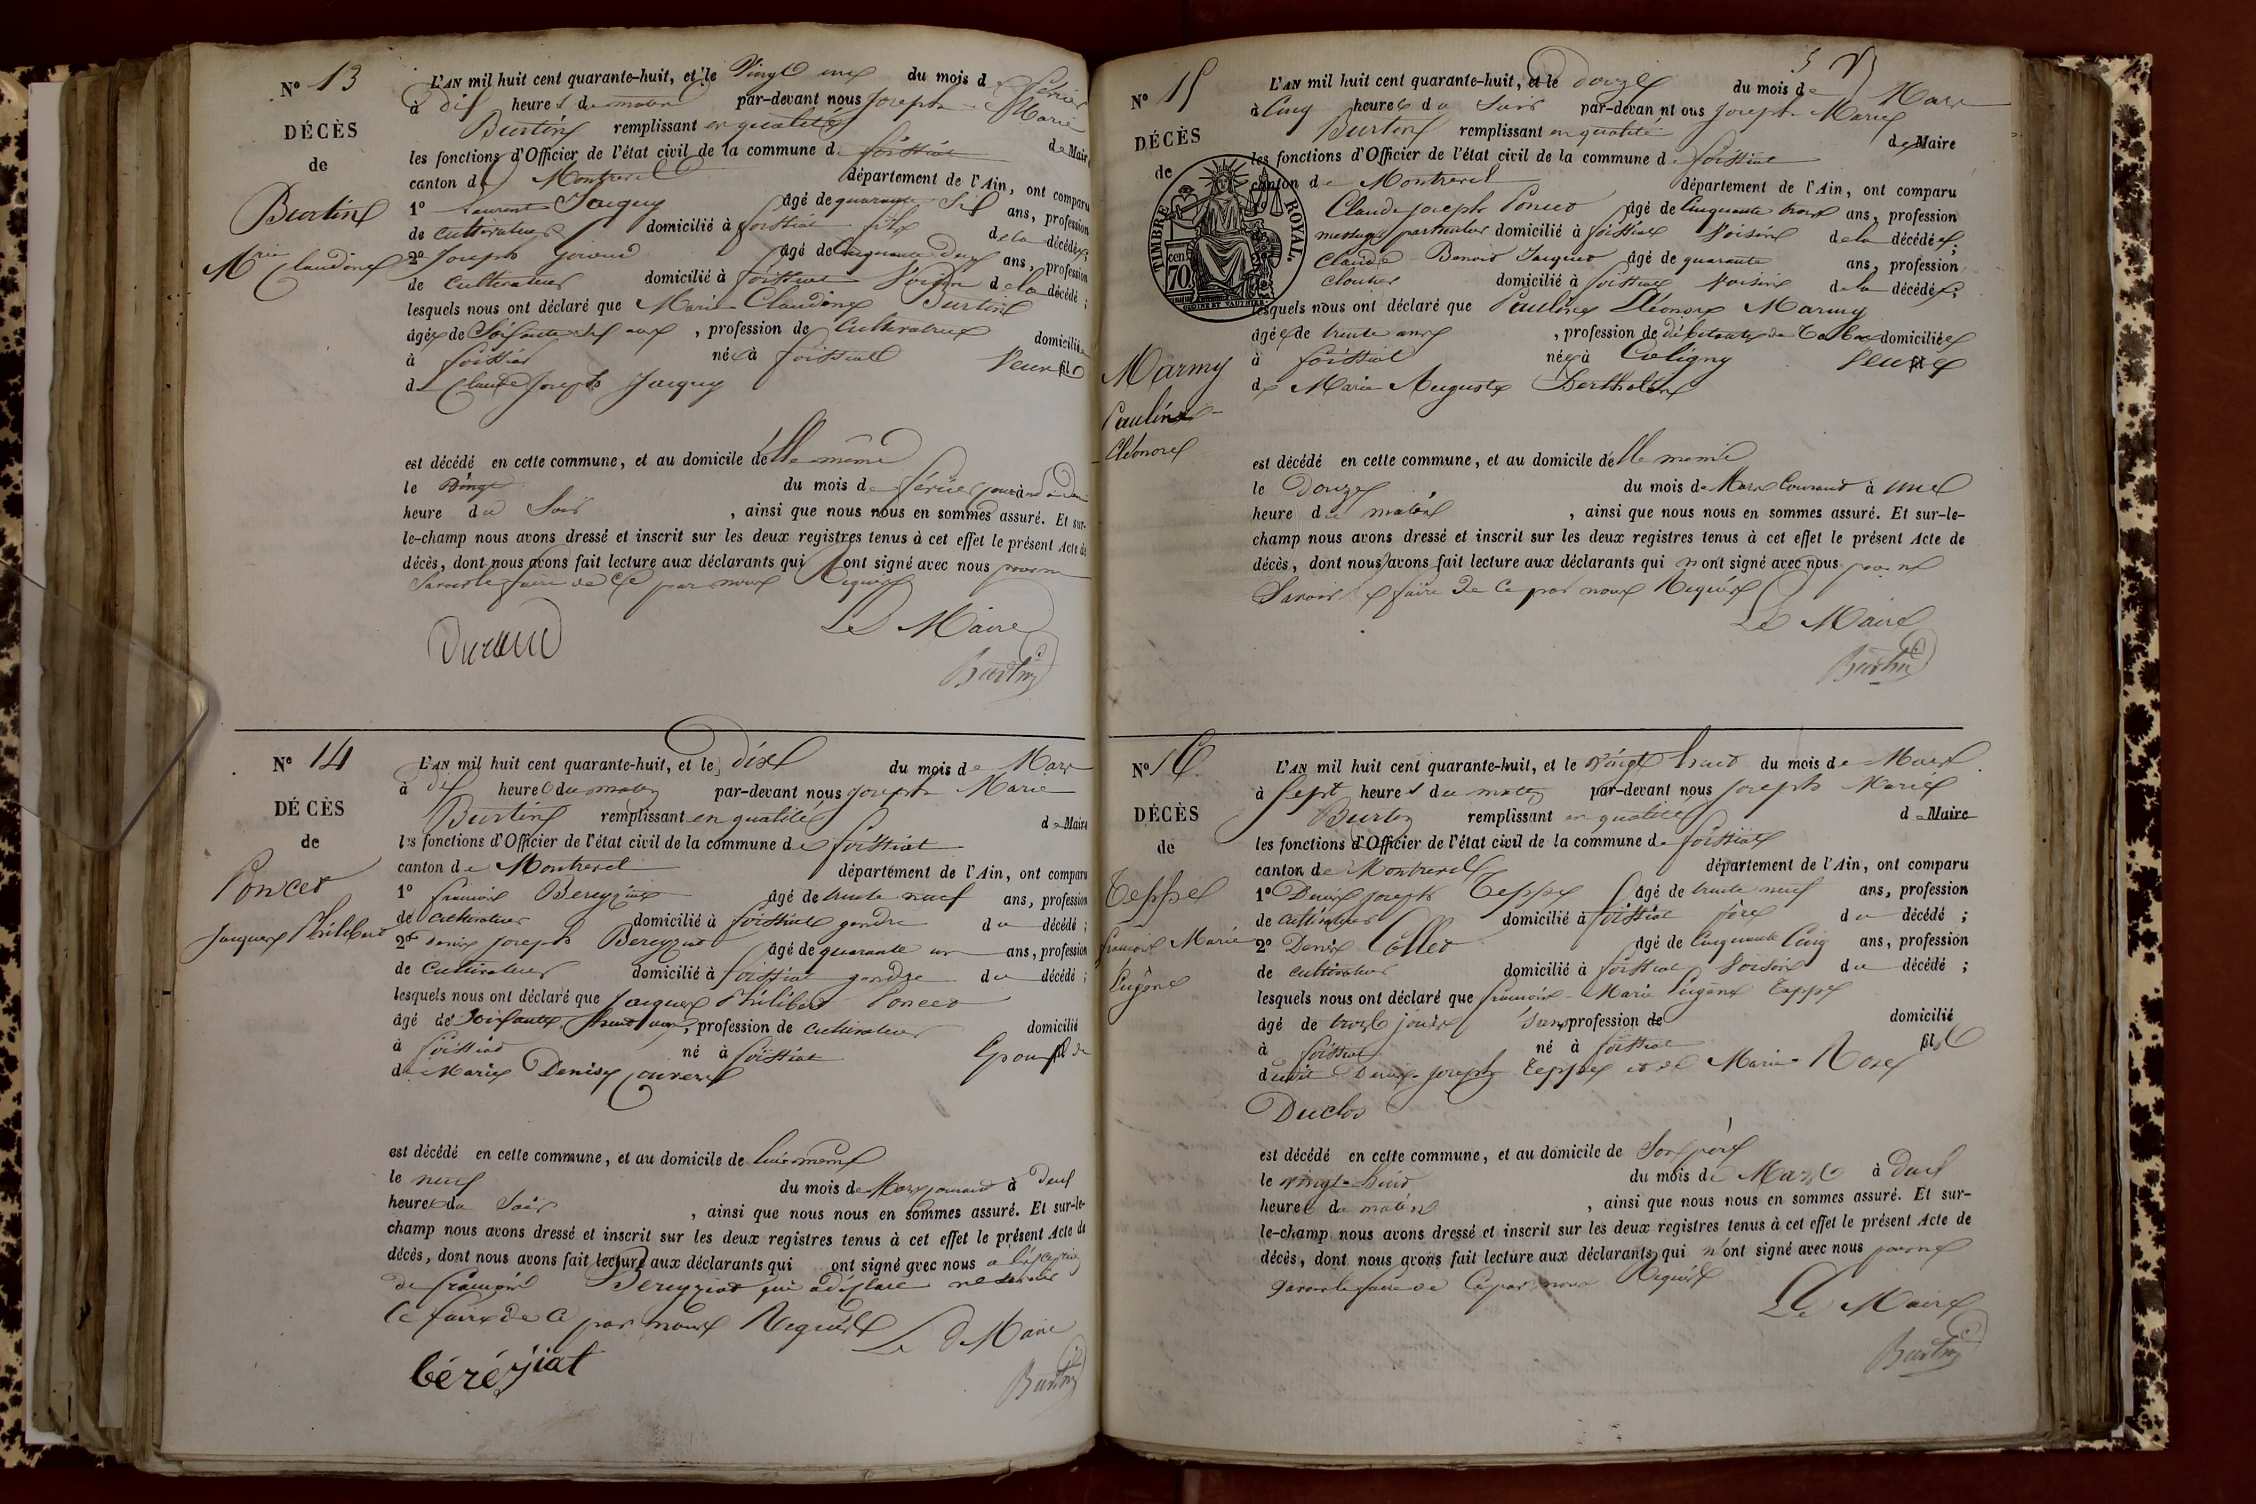 N° 13
DÉCÈS
de
Burtin
Mrie Claudine
L'AN mil huit cent quarante-huit, et le Vingt un du mois de février
à dix heures du matin par-devant nous Joseph Marie
Burtin remplissant en qualité de Maire
les fonctions d'Officier de l'état civil de la commune de foissiat
canton de Montrevel département de l'Ain, ont comparu
1° Laurent Jacquy âgé de quarante six ans, profession
de cultivateur domicilié à foissiat fils de la décédée;
2° Joseph âgé de cinquante deux ans, profession
de cultivateur domicilié à foissiat Voisin de la décédé;
lesquels nous ont déclaré que Marie Claudine Burtin
âgée de Soixante dix ans, profession de Cultivatrice domiciliée
à foissiat née à foissiat Veuve
de Claude Joseph Jacquy
est décédé en cette commune, et au domicile d'elle même
le Vingt du mois de février courant à
heure du Soir, ainsi que nous nous en sommes assuré. Et sur-
le-champ nous avons dressé et inscrit sur les deux registres tenus à cet effet le présent Acte de
décès, dont nous avons fait lecture aux déclarants qui n'ont signé avec nous pour ne
Savoir le faire de ce par nous Requis
Le Maire
Burtin
N° 14
DÉCÈS
de
Poncet
Jacques Philibert
L'AN mil huit cent quarante-huit, et le dix du mois de Mars
à dix heures du matin par-devant nous Joseph Marie
Burtin remplissant en qualité de Maire
les fonctions d'Officier de l'état civil de la commune de foissiat
canton de Montrevel département de l'Ain, ont comparu
1° françois Bereyziat âgé de trente neuf ans, profession
de cultivateur domicilié à foissiat gendre du décédé;
2° Denis Joseph Bereyziat âgé de quarante un ans, profession
de cultivateur domicilié à foissiat gendre du décédé;
lesquels nous ont déclaré que Jacques Philibert Poncet
âgé de Soixante huit ans, profession de cultivateur domicilié
à foissiat né à foissiat Epoux de
de Marie Denise
est décédé en cette commune, et au domicile de lui même
le neuf du mois de Mars courant à deux
heures du Soir, ainsi que nous nous en sommes assuré. Et sur-le-
champ nous avons dressé et inscrit sur les deux registres tenus à cet effet le présent Acte de
décès, dont nous avons fait lecture aux déclarants qui ont signé avec nous à l'exception
de françois Bereyziat qui a déclaré ne savoir
le faire de ce par nous Requis Le Maire
béréziat
Burtin
N° 15
DÉCÈS
de
Marmy
Pauline
Eléonore
TIMBRE ROYAL.
70 cen
L'AN mil huit cent quarante-huit, et le douze du mois de Mars
à Cinq heures du Soir par-devant nous Joseph Marie
Burtin remplissant en qualité de Maire
les fonctions d'Officier de l'état civil de la commune de foissiat
canton de Montrevel département de l'Ain, ont comparu
Claude Joseph Poncet âgé de Cinquante trois ans, profession
messager particulier domicilié à foissiat Voisin de la décédée;
Claude Benoit Jacquet âgé de quarante ans, profession
cloutier domicilié à foissiat Voisin de la décédée;
lesquels nous ont déclaré que Pauline Eléonore Marmy
âgée de trente ans, profession de débitante de Tabac domiciliée
à foissiat née à Coligny Veuve
de Marie Auguste Berthelon
est décédé en cette commune, et au domicile d'elle même
le Douze du mois de Mars Courant à une
heure du matin, ainsi que nous nous en sommes assuré. Et sur-le-
champ nous avons dressé et inscrit sur les deux registres tenus à cet effet le présent Acte de
décès, dont nous avons fait lecture aux déclarants qui n'ont signé avec nous pour ne
Savoir le faire de ce par nous Requis
Le Maire
Burtin
N° 16
DÉCÈS
de
Teppe
françois Marie
Eugène
L'AN mil huit cent quarante-huit, et le vingt huit du mois de Mars
à Sept heures du matin par-devant nous Joseph Marie
Burtin remplissant en qualité de Maire
les fonctions d'Officier de l'état civil de la commune de foissiat
canton de Montrevel département de l'Ain, ont comparu
1° Denis Joseph Teppe âgé de trente neuf ans, profession
de cultivateur domicilié à foissiat père du décédé;
2° Denis Collet âgé de Cinquante Cinq ans, profession
de cultivateur domicilié à foissiat Voisin du décédé;
lesquels nous ont déclaré que françois Marie Eugène Teppe
âgé de jours Sans profession de domicilié
à foissiat né à foissiat fils
dudit Denis Joseph Teppe et de Marie Rose
Duclos
est décédé en cette commune, et au domicile de Son père
le vingt huit du mois de Mars à deux
heures du matin, ainsi que nous nous en sommes assuré. Et sur-
le-champ nous avons dressé et inscrit sur les deux registres tenus à cet effet le présent Acte de
décès, dont nous avons fait lecture aux déclarants qui n'ont signé avec nous pour ne
Savoir le faire de ce par nous Requis
Le Maire
Burtin